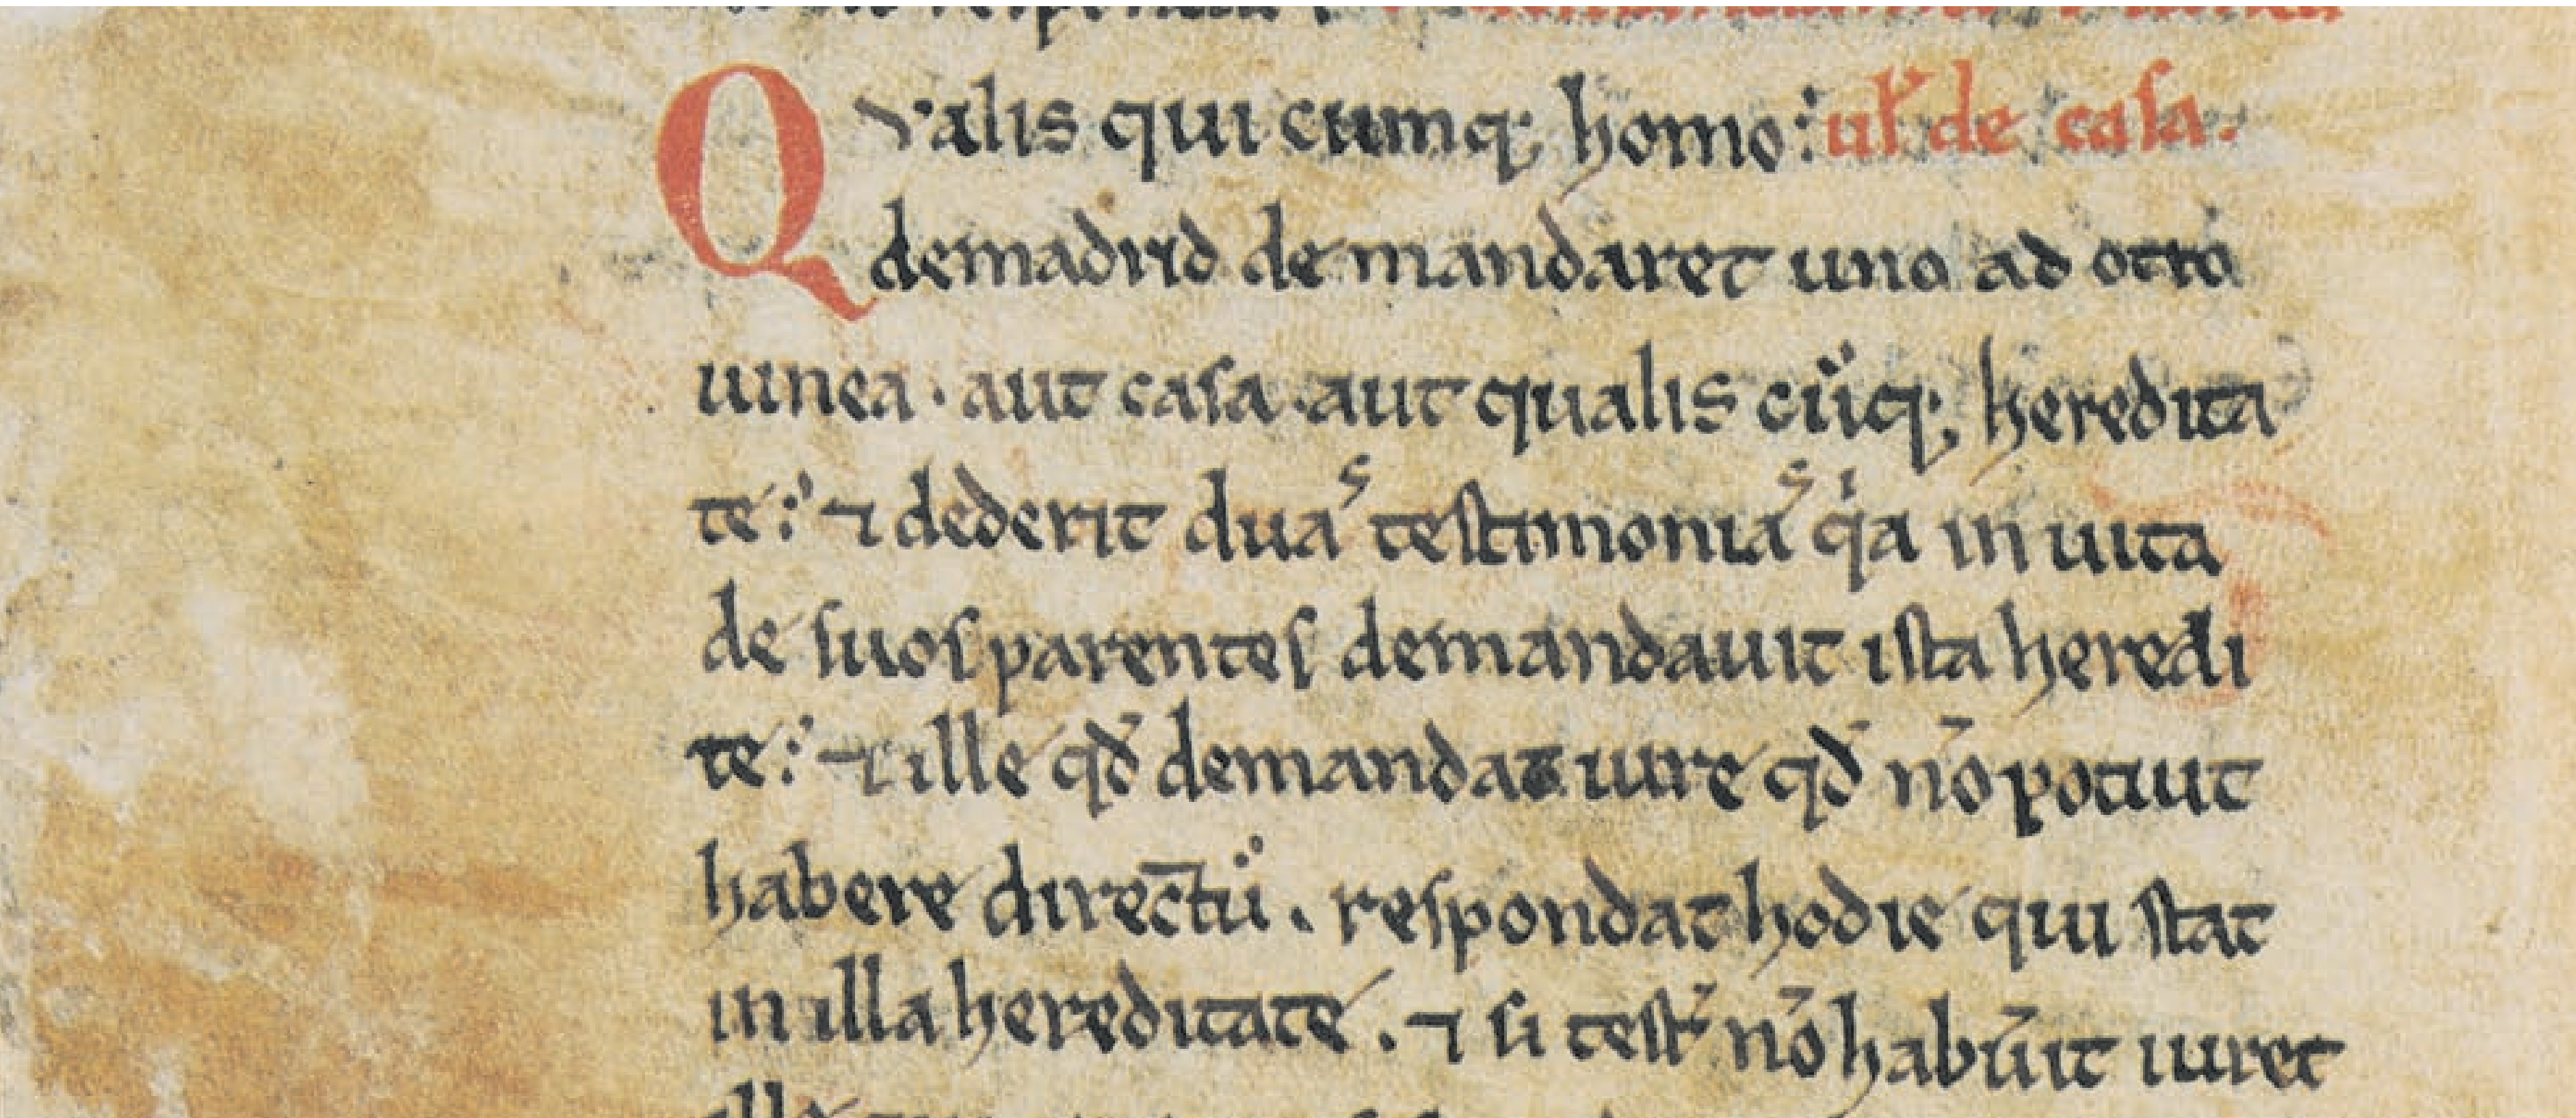 Qvalis qui cumq; homo: ul̃ de casa.
demadrid de mandaret uno ad otro
uinea · aut casa · aut qualis cũq; heredita
te: ⁊ dederit duaˢ testimoniaˢ qⁱa in uita
de suos parentes demandauit ista heredi
te: ⁊ ille qd̃ demandat iure qd̃ nõ potuit
habere directũ. respondat hodie qui stat
in illa hereditate. ⁊ si test̃ nõ habũit iuret